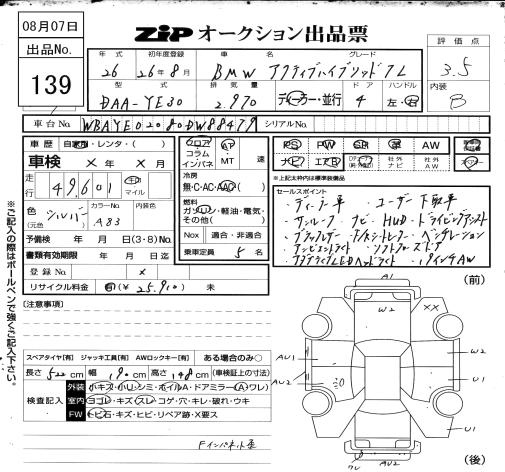 08月07日
ZiP オークション出品票
出品No.
139
年式 初年度登録 車名 グレード
26 26年8月 BMW アクティブハイブリッド7L
型式 排気量 ドア ハンドル
DAA-YE30 2.970 ディーラー・並行 4 左・右
評価点
3.5
内装
B
車台No. WBAYE02080DW88479 シリアルNo.
車歴 自家用・レンタ・( )
車検 × 年 × 月
走行 49,601 km マイル
色(元色) シルバー カラーNo. A83 内装色
予備検 年 月 日(3・8)No.
書類有効期限 年 月 日迄
登録No. ×
リサイクル料金 (¥ 25,910 ) 未
フロア コラム インパネ AT MT 速
冷房
無・C・AC・AAC
燃料
ガソリン・軽油・電気・その他( )
Nox 適合・非適合
乗車定員 5 名
PS PW SR 革 AW
ナビ エアB 社外ナビ 社外AW
※上記太枠内は標準装備品
セールスポイント
・ディーラー車 ・ユーザー下取車
・サンルーフ ナビ HUD ドライビングアシスト
・アンビエントライト ソフトクローズドア
・アダプティブLEDヘッドライト ・19インチAW
※ご記入の際はボールペンで強くご記入下さい。
[注意事項]
スペアタイヤ[有] ジャッキ工具[有] AWロックキー[有] ある場合のみ○
長さ 522 cm 幅 190 cm 高さ 148 cm (車検証上の寸法)
検査記入
外装 小キズ・小凹・シミ・ホイルA・ドアミラー(A・ワレ)
室内 ヨゴレ・キズ・スレ・コゲ・穴・キレ・破れ・ウキ
FW トビ石・キズ・ヒビ・リペア跡・X要ス
Fインパネキズ
(前)
A1
W2
XX
AU1
AU2
W2
U1
U1
AU2
ワレ
(後)